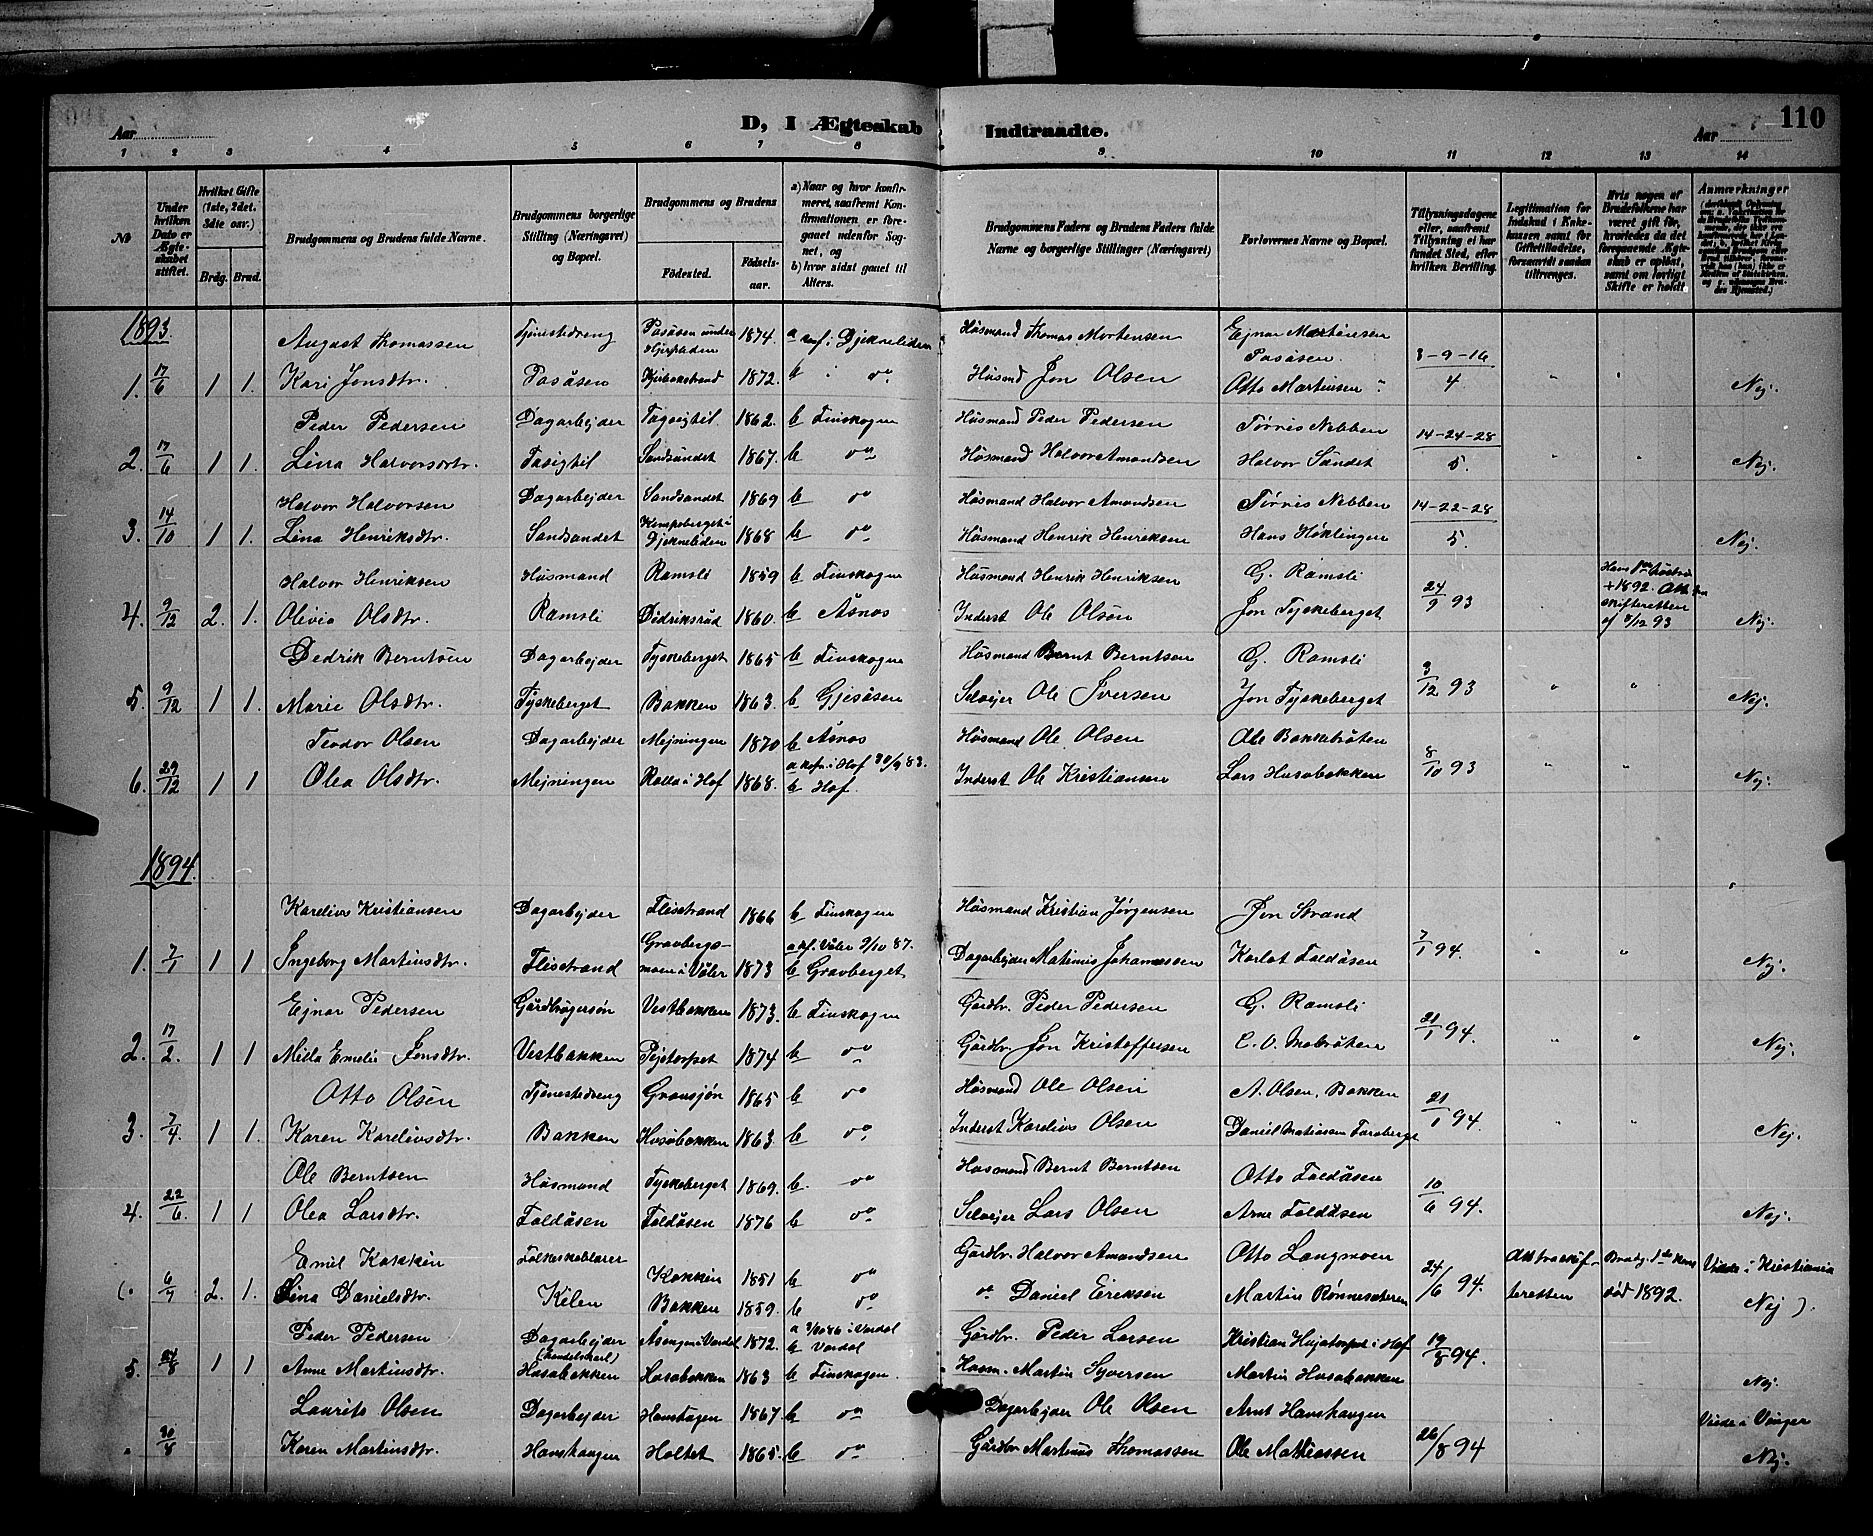 110
D, I Ægteskab Indtraadte.
Aar Aar
1 2 3 4 5 6 7 8 9 10 11 12 13 14
No
Under hvilken Dato er Ægteskabet stiftet.
Hvilket Gifte (1ste, 2det, 3die osv.)
Brdg. Brud.
Brudgommens og Brudens fulde Navne.
Brudgommens borgerlige Stilling (Næringsvei) og Bopæl.
Brudgommens og Brudens
Födested. Födsels-aar.
a) Naar og hvor konfirmeret, saafremt Konfirmationen er foregaaet udenfor Sognet, og
b) hvor sidst gaaet til Alters.
Brudgommens Faders og Brudens Faders fulde Navne og borgerlige Stillinger (Næringsvei)
Forlovernes Navne og Bopæl.
Tillysningsdagene eller, saafremt Tillysning ei har fundet Sted, efter hvilken Bevilling.
Legitimation for Indskud i Enkekassen samt for Giftetilladelse, forsaavidt saadan tiltrænges.
Hvis nogen af Brudefolkene har været gift før, hvorledes da det foregaaende Ægteskab er opløst, samt om lovligt Skifte er holdt
Anmærkninger
1893.
August Thomassen Tjenestedreng Pasåsen under 1874. a conf. i Djekneliden Husmand Thomas Mortensen Ejnar Martinesen
1. 17/6 1 1. Kari Jonsdtr. Pasåsen 1872. b i do Husmd Jon Olsen Pasåsen. Otto Martinsen " 3-9-16/4 " " Nej.
Peder Pedersen Dagarbejder 1862. b Finskogen Husmand Peder Pedersen Tørris Nebben
2. 17/6 1 1. Lina Halvorsdtr. Sandsundet 1867. b do Husmand Halvor Amundsen Halvor Sundet 14-24-28/5. " " Nej.
Halvor Halvorsen Dagarbejder Sandsundet 1869 b do Husmand Halvor Amundsen Tørris Nebben
3. 14/10 1 1. Lina Henriksdtr. Sandsundet Kempeberget i Djekneliden 1868 b do Husmand Henrik Henriksen Hans Høklingen 14-22-28/5. Nej.
Halvor Henriksen Husmand Ramsli 1859 b Finskogen Husmand Henrik Henriksen G. Ramsli
4. 9/12 2. 1. Olivia Olsdtr. Ramsli Didriksrud 1860. b Åsnes Inderst Ole Olsøn Jon Tyskeberget 24/9 93 " +1892. Att. fra skifteretten af 8/12 93 Nej.
Dedrik Berntsen Dagarbejder Tyskeberget 1865 b Finskogen Husmand Bernt Berntsen G. Ramsli
5. 9/12 1 1. Marie Olsdtr. Tyskeberget Bakken 1863. b Gjesåsen Selvejer Ole Iversen Jon Tyskeberget 3/12 93 " " Nej.
Teodor Olsen Dagarbejder Mejningen 1870 b Åsnes Husmand Ole Olsen Ole Bakkebråten
6. 29/12 1 1 Olea Olsdtr. Mejningen Rotta i Hof 1868. a kofn. i Hof 30/9 83. b Hof. Inderst Ole Kristiansen Lars Husobakken 8/10 93 " " Nej.
1894.
Karelius Kristiansen Dagarbejder Flisstrand 1866 b Finskogen Husmand Kristian Jørgensen Jon Strand
1. 7/1 1 1 Ingeborg Martinsdtr. Flisstrand Gravbergsmoen i Våler 1873 a kf. Våler 9/10 87. b Gravberget Dagarbejder Matinus Johannessen Karlot Faldåsen 7/1 94. " " Nej.
Ejnar Pedersen Gårdbrugersøn Vestbakken 1873. b Finskogen Gårdbr. Peder Pedersen G. Ramsli
2. 17/2. 1 1 Milla Emelie Jonsdtr. Vestbakken Pejstorpet 1874 b do Gårdbr. Jon Kristoffersen 21/1 94. " " Nej.
Otto Olsen Tjenestedreng Gransjøn 1865 b do Husmand Ole Olsen A. Olsen, Bakken
3. 7/4. 1 1. Karen Kareliusdtr. Bakken Husobakken 1863. b do Inderst Karelius Olsen Daniel Matiassen Faraberget 21/1 94. " " Nej.
Ole Berntsen Husmand Tyskeberget 1869. b. do Husmand Bernt Berntsen Otto Faldåsen
4. 22/6. 1 1 Olea Larsdtr. Faldåsen Faldåsen 1876 b do Selvejer Lars Olsen Arne Faldåsen 10/6 94. Nej.
Emil Kakkin Folkeskolelærer Kakkin 1851 b do Gårdbr. Halvor Amundsen Otto Langmoen
(. 6/7 2. 1. Lina Danielsdtr. Kilen Bakken 1859. b do do Daniel Eriksen Martin Rønnesæteren 24/6 94. Att. fra skifteretten Brudg. 1ste kone død 1892. Viede i Kristiania Nej ).
Peder Pedersen Dagarbejder (handelskarl) Åsengen i Værdal 1872. b Værdal Gårdbr. Peder Larsen Kristian Hejatorpet i Hof
5. 24/8 1 1 Anne Martinsdtr. Husobakken Husobakken 1863 b Finskogen. Husm. Martin Syversen Martin Husobakken 19/8 94. Nej.
Laurits Olsen Dagarbejder Hanshagen 1867. b do Dagarbejder Ole Olsen Arnt Hanshaugen
30/8 1 1 Karen Martinsdtr. Hanshaugen Holtet 1865. b do Gårdbr Martinus Thomassen Ole Mathiassen 26/8 94 Viede i Vinger Nej.